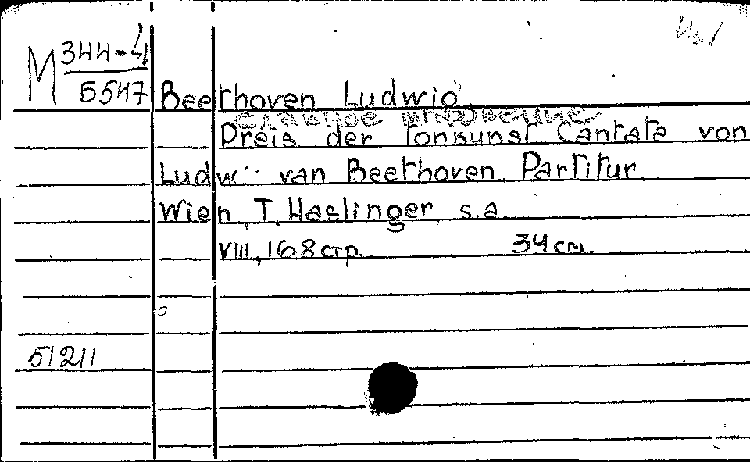 M 344-4
5547
Beethoven Ludwig
Preis der Tonkunst Cantate von
Ludwig van Beethoven Partitur
Wien, T. Haslinger, s.a.
VIII, 168 стр. 34 см.
51211